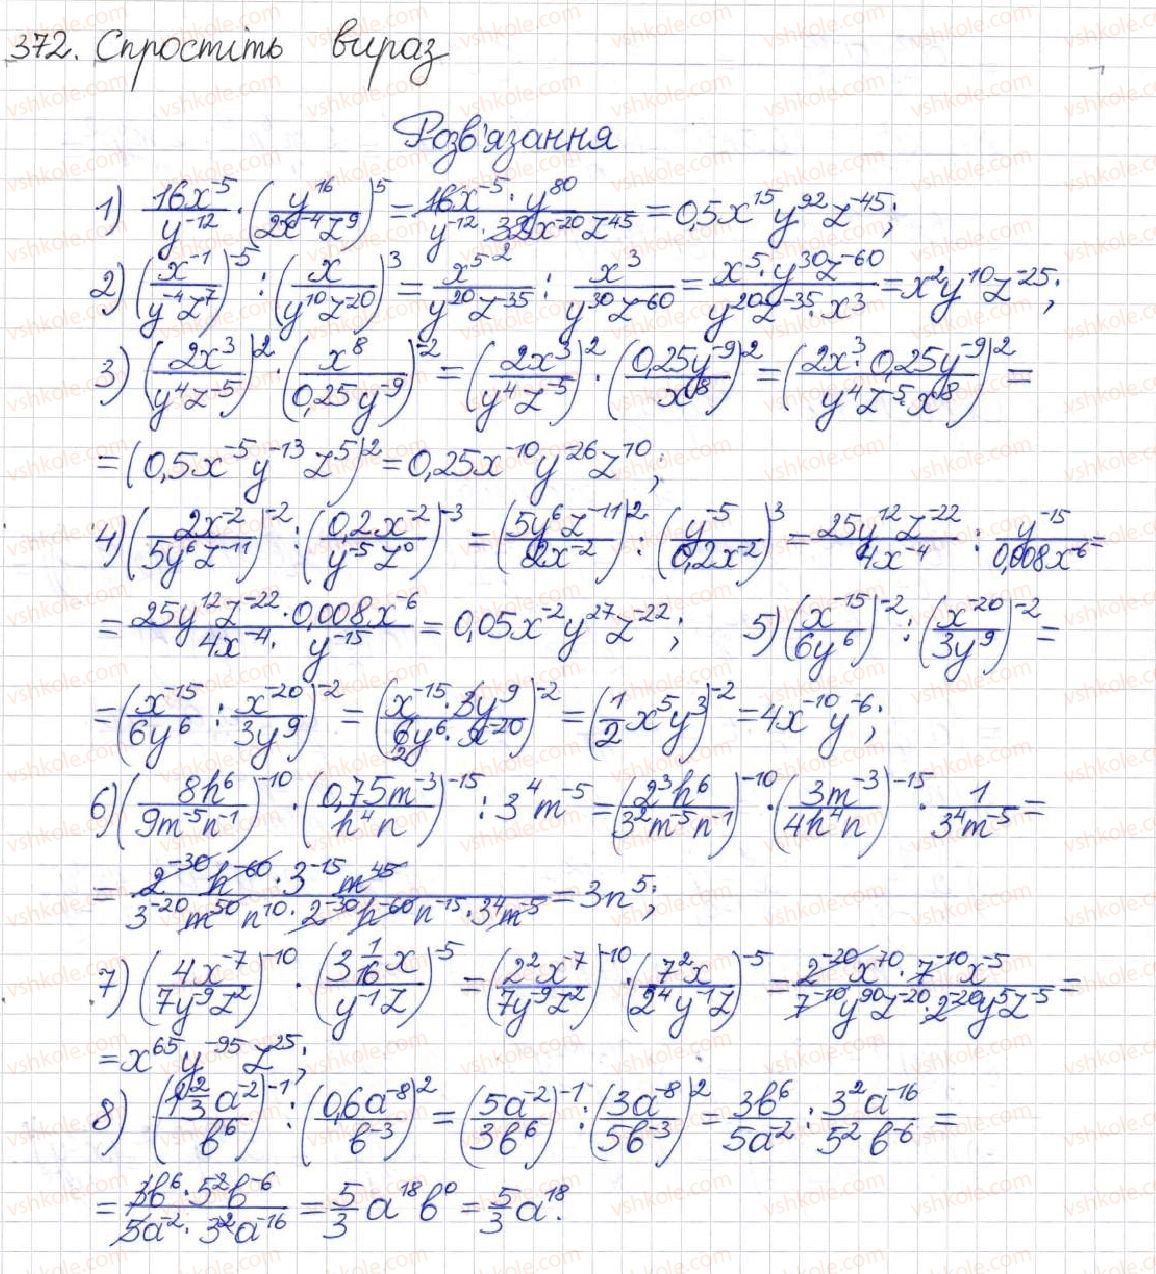 372. Спростіть вираз
Розв'язання
1) 16x^-5/y^-12 · (y^16/2x^-4z^9)^5 = 16x^-5·y^80/y^-12·32x^-20z^45 = 0,5x^15y^92z^-45;
2) (x^-1/y^-4z^7)^-5 : (x/y^10z^-20)^3 = x^5/y^20z^-35 : x^3/y^30z^-60 = x^5·y^30z^-60/y^20z^-35·x^3 = x^2y^10z^-25;
3) (2x^3/y^4z^-5)^2 · (x^8/0,25y^-9)^-2 = (2x^3/y^4z^-5)^2 · (0,25y^-9/x^8)^2 = (2x^3·0,25y^-9/y^4z^-5·x^8)^2 =
= (0,5x^-5y^-13z^5)^2 = 0,25x^-10y^-26z^10;
4) (2x^-2/5y^6z^-11)^-2 : (0,2x^-2/y^-5z^0)^-3 = (5y^6z^-11/2x^-2)^2 : (y^-5/0,2x^-2)^3 = 25y^12z^-22/4x^-4 : y^-15/0,008x^-6 =
= 25y^12z^-22·0,008x^-6/4x^-4·y^-15 = 0,05x^-2y^27z^-22; 5) (x^-15/6y^6)^-2 : (x^-20/3y^9)^-2 =
= (x^-15/6y^6 : x^-20/3y^9)^-2 = (x^-15·3y^9/6y^6·x^-20)^-2 = (1/2x^5y^3)^-2 = 4x^-10y^-6;
6) (8h^6/9m^-5n^-1)^-10 · (0,75m^-3/h^4n)^-15 : 3^4m^-5 = (2^3h^6/3^2m^-5n^-1)^-10 · (3m^-3/4h^4n)^-15 · 1/3^4m^-5 =
= 2^-30h^-60·3^-15m^45/3^-20m^50n^10·2^-30h^-60n^-15·3^4m^-5 = 3n^5;
7) (4x^-7/7y^-9z^2)^-10 · (3 1/16x/y^-1z)^-5 = (2^2x^-7/7y^-9z^2)^-10 · (7^2x/2^4y^-1z)^-5 = 2^-20x^70·7^-10x^-5/7^-10y^90z^-20·2^-20y^5z^-5 =
= x^65y^-95z^25;
8) (1 2/3a^-2/b^6)^-1 : (0,6a^-8/b^-3)^2 = (5a^-2/3b^6)^-1 : (3a^-8/5b^-3)^2 = 3b^6/5a^-2 : 3^2a^-16/5^2b^-6 =
= 3b^6·5^2b^-6/5a^-2·3^2a^-16 = 5/3a^18b^0 = 5/3a^18.